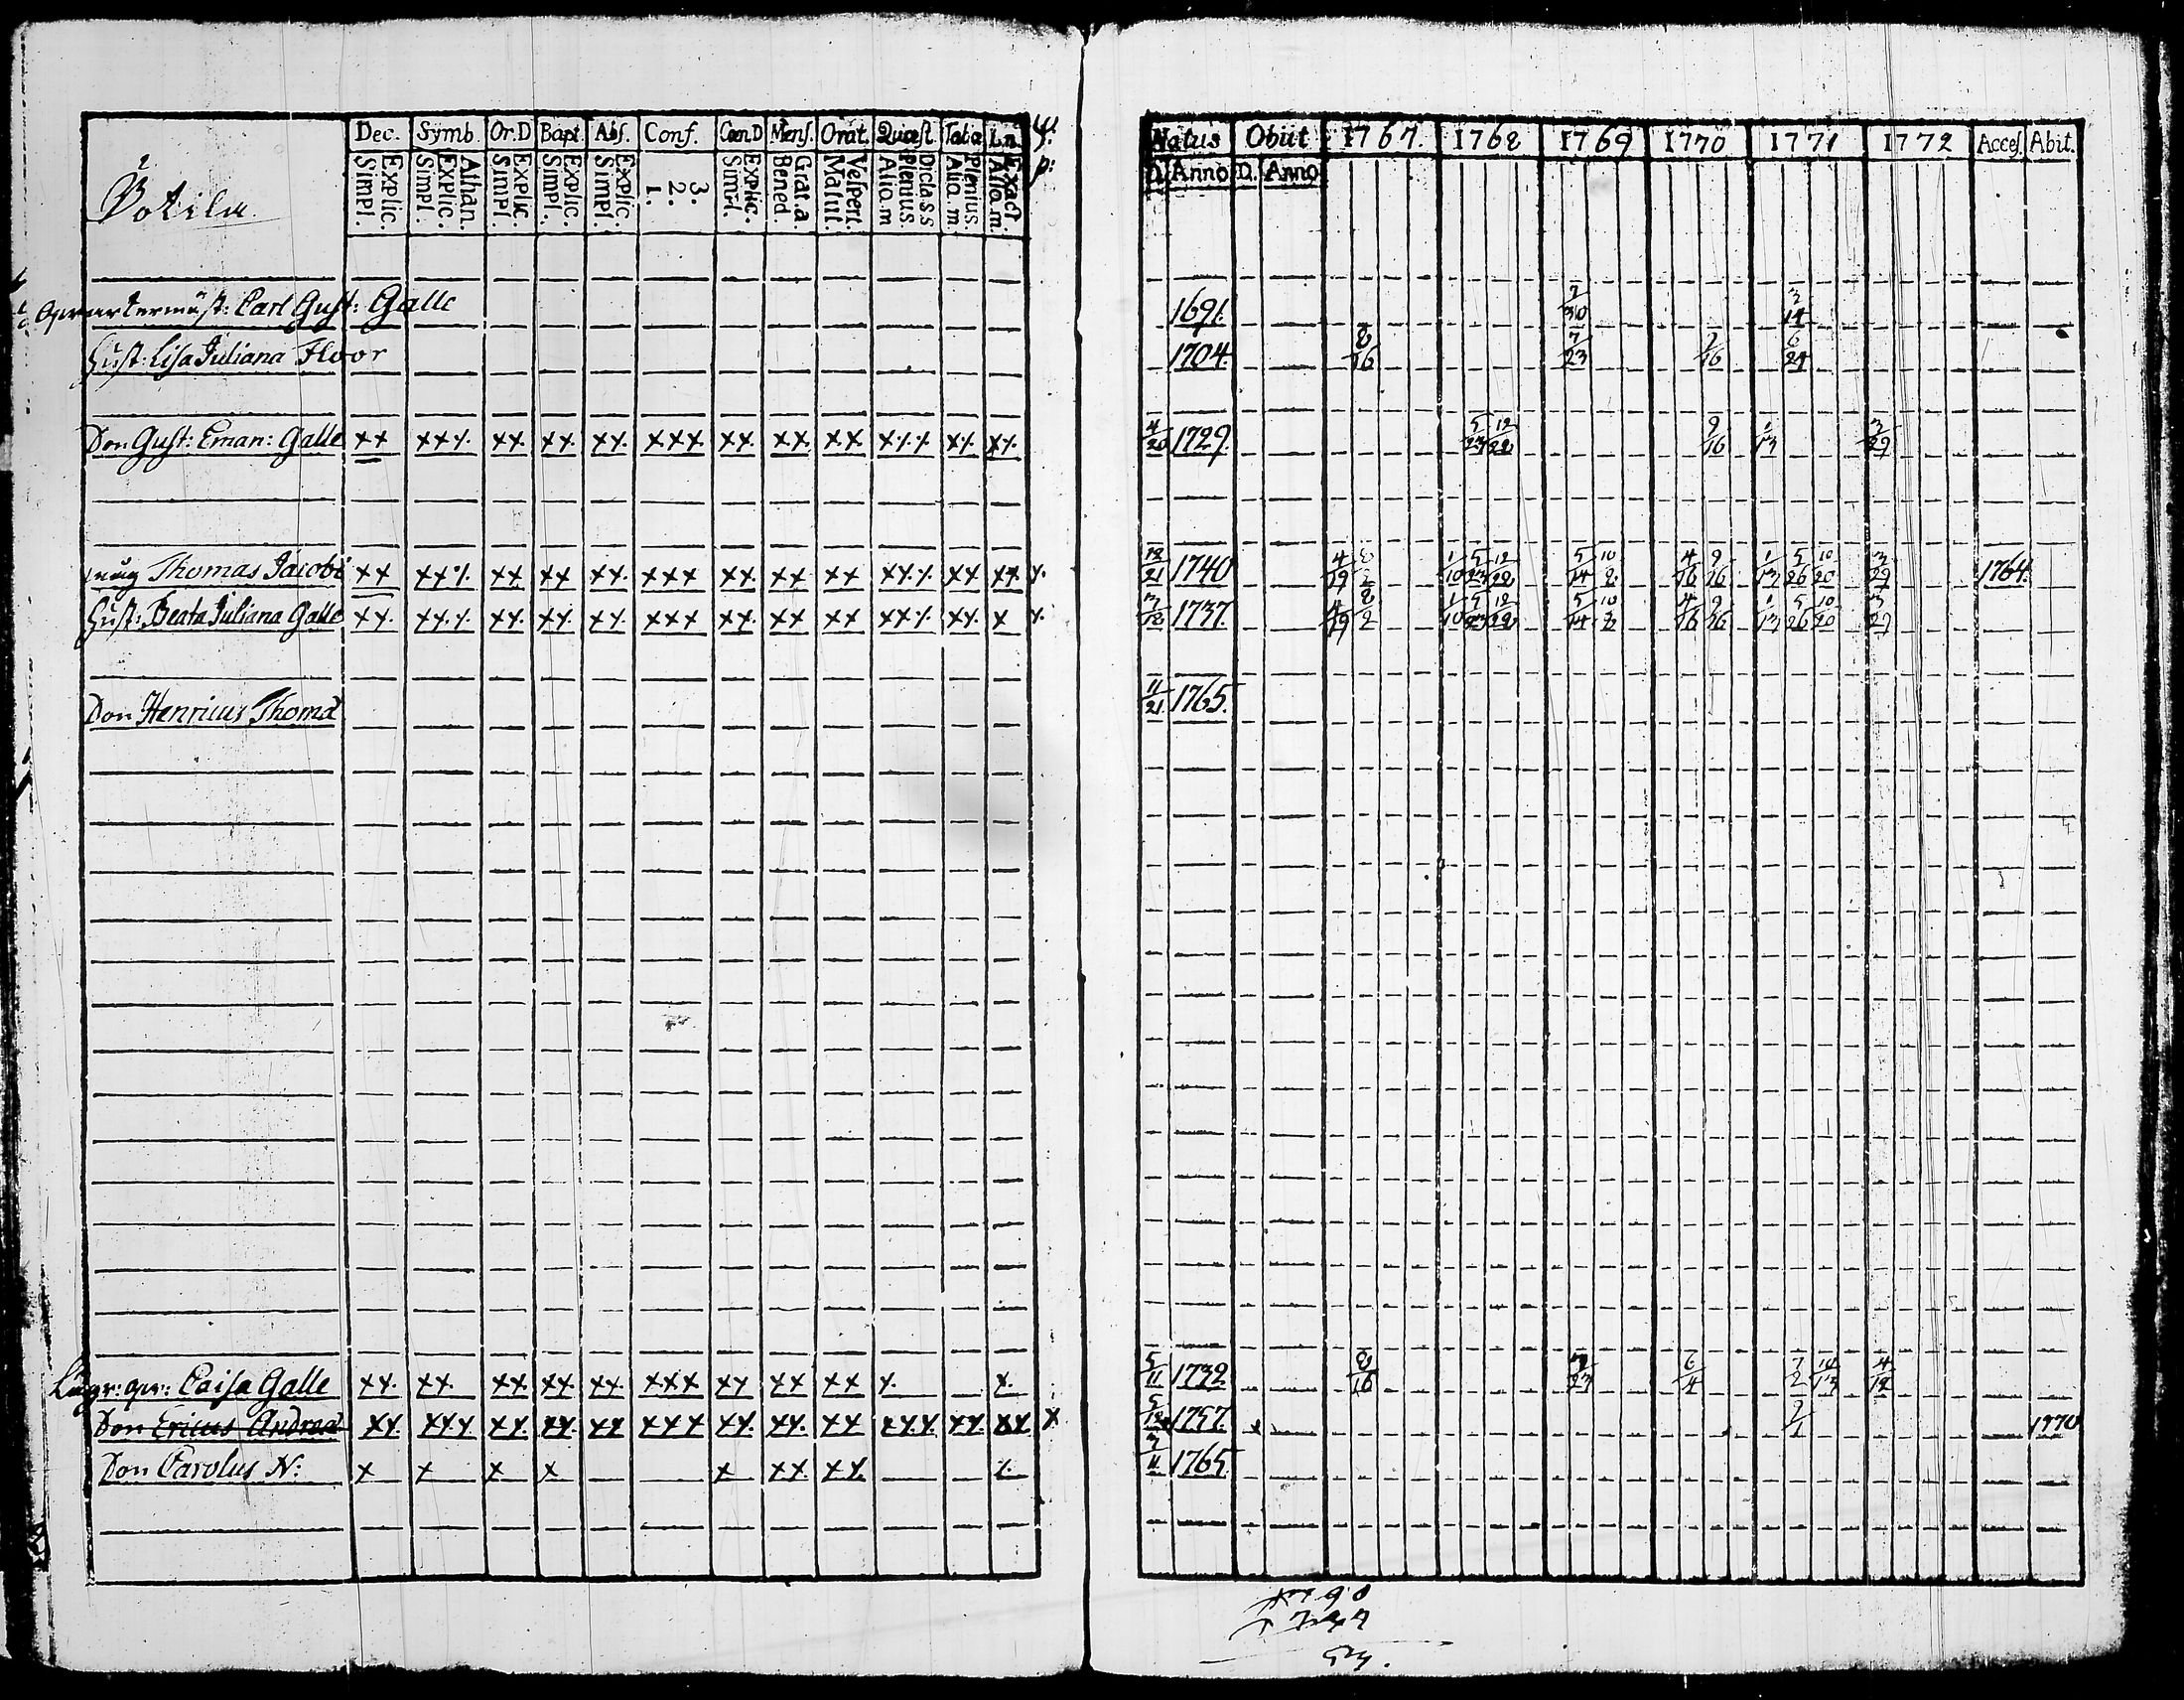 Dec. Symb. Or.D Bapt Abs. Conf. Cœn.D Mens. Orat. Quæst. Tabia L.n. y.
Explic. Simpl. Athan. Explic. Simpl. Explic. Simpl. Explic. Simpl. Explic. Simpl. 3. 2. 1. Explic. Simpl. Grat. a. Bened. Vespert. Matut. Dicta ss Plenius. Aliq. m Plenius. Aliq. m. Exact. Aliq. m. p:
Natus Obiit 1767. 1768 1769 1770 1771 1772 Acces. Abit.
D. Anno D. Anno
Carl Gust: Galle 1691. 7/30 3/14
Hust: Lisa Juliana Floor 1704. 8/16 7/23 7/16 6/24
Son Gust: Eman: Galle xx xxx xx xx xx xxx xx xx xx xxx xx xx 4/20 1729. 5/23 12/28 9/16 1/13 3/29
måg Thomas Jacobi xx xxx xx xx xx xxx xx xx xx xxx xx xx x. 12/21 1740 4/19 8/2 1/10 5/23 12/28 5/14 10/8 4/16 9/16 1/13 5/26 10/20 3/29 1764.
Hust: Beata Juliana Galle xx xxx xx xx xx xxx xx xx xx xxx xx x x. 3/18 1737. 4/19 8/2 1/10 5/23 12/28 5/14 10/8 4/16 9/16 1/13 5/26 10/20 3/29
Son Henricus Thomæ 11/21 1765.
Caisa Galle xx xx xx xx xx xxx xx xx xx x. x. 5/11 1732 8/16 7/23 6/4 7/2 10/13 4/12
Son Ericus Andreæ xx. xxx xx. xx. xx xxx xx. xx. xx xxx xx. xx x 1757. 1770
Son Carolus N: x x x x x xx xx x. 1765.